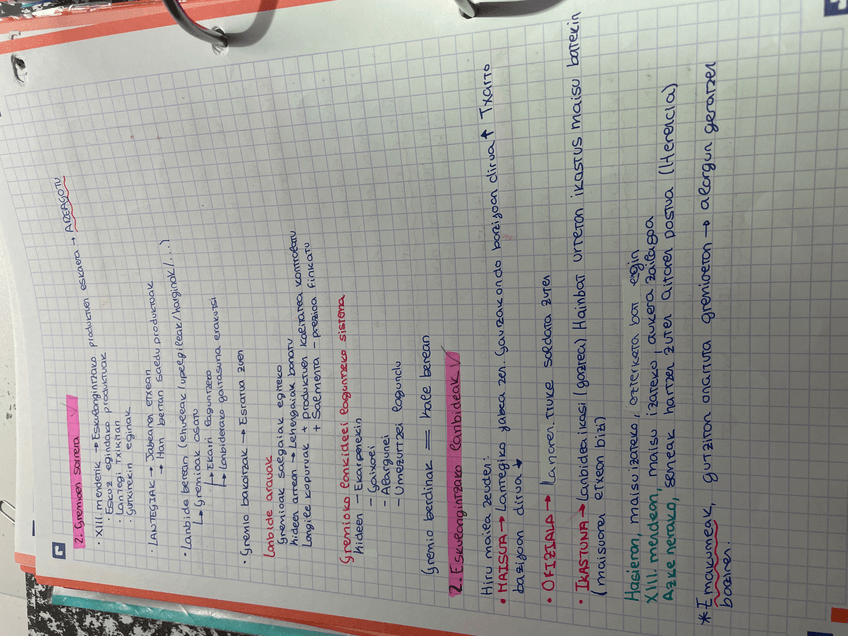 2. Gremioen sorrera
· XIII. mendetik → Eskulangintzako produktuen eskaera → AREAGOTU
· Eskuz egindako produktuak
· Lantegi txikitan
· Gutxirekin eginak
· LANTEGIAK → Jabearen etxean
→ Han bertan saldu produktuak
· Lanbide berean (ehuleak/upelgileak/harginak/...)
↳ Gremioak osatu
↳ Elkarri laguntzeko
↳ Lanbiderako gaitasuna erakutsi
· Gremio bakoitzak → Estatua zuen
Lanbide arauak
Gremioak saltzaiak egiteko
kideen artean → Lehengaiak banatu
Langile kopuruak + produktuen kalitatea kontrolatu
+ Salmenta - prezioa finkatu
Gremioko lankideei laguntzeko sistema
kideen - Ekarpenekin
- Gaixoei
- Alargunei
- Umezurtzei lagundu
Gremio berdinak = kale berean
2. Eskulangintzako lanbideak
Hiru maila zeuden:
· MAISUA → Lantegiko jabea zen. Gauzak ondo bazijoan dirua ↑ Txarto
bazijoan dirua ↓
· OFIZIALA → Lanaren truke soldata zuten
· IKASTUNA → Lanbidea ikasi (gaztea) Hainbat urtetan ikastus maisu batekin
(maisuaren etxean bizi)
Hasieran, maisu izateko, azterketa bat egin
XIII. mendean, maisu izateko, aukera zailagoa
Azkenerako, semeak hartzen zuten aitaren postua (Herencia)
*Emakumeak, gutxitan onartuta gremioetan → alargun geratzen
baziren.